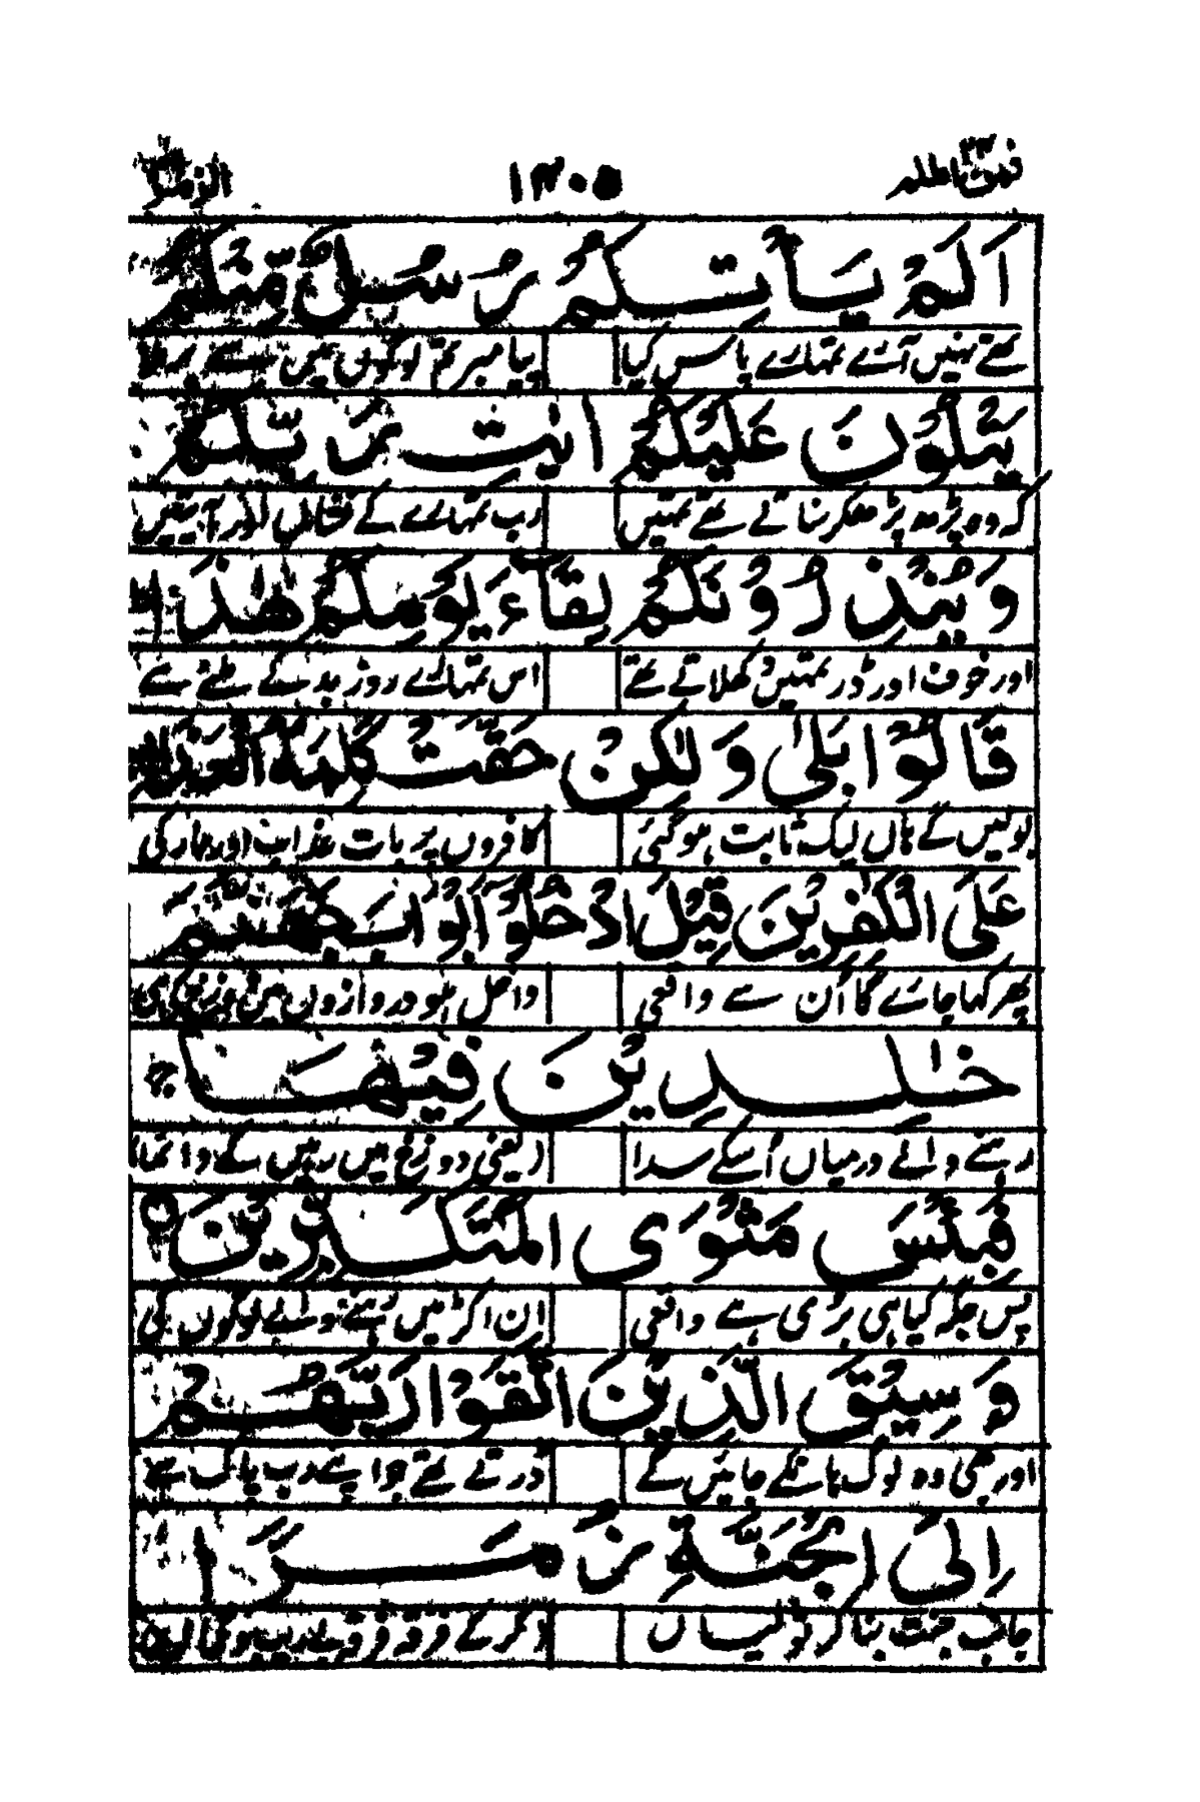 فمن اظلم ۲۴ ۱۳۰۵ الزمر
اَلَمْ يَأْتِكُمْ رُسُلٌ مِّنْكُمْ
تھے نہیں آئے تمہارے پاس کیا پیامبر تم لوگوں میں سے
يَتْلُوْنَ عَلَيْكُمْ اٰيٰتِ رَبِّكُمْ
کہ وہ پڑھ پڑھکر سناتے تھے تمہیں رب تمہارے کے آیتیں
وَيُنْذِرُوْنَكُمْ لِقَآءَ يَوْمِكُمْ هٰذَا
اور خوف اور ڈر تمہیں دکھلاتے تھے اس تمہارے روز بد کے ملنے سے
قَالُوْا بَلٰى وَلٰكِنْ حَقَّتْ كَلِمَةُ الْعَذَابِ
بولیں گے ہاں لیک ثابت ہو گئی کافروں پر بات عذاب اور مار کی
عَلَى الْكٰفِرِيْنَ قِيْلَ ادْخُلُوْٓا اَبْوَابَ جَهَنَّمَ
پھر کہا جائے گا اُن سے واقعی داخل ہو دروازوں میں
خٰلِدِيْنَ فِيْهَا ج
رہنے والے درمیاں اُسکے سدا (یعنی دوزخ میں رہیں گے دائما
فَبِئْسَ مَثْوَى الْمُتَكَبِّرِيْنَ ○
پس جگہ کیا ہی بُری ہے واقعی ان اکڑ میں رہنے والے لوگوں کی
وَسِيْقَ الَّذِيْنَ اتَّقَوْا رَبَّهُمْ
اور بھی وہ لوگ ہانکے جائیں گے ڈرتے تھے جو اپنے رب پاک سے
اِلَى الْجَنَّةِ زُمَرًا
جانب جنت بنا کر ٹولیاں